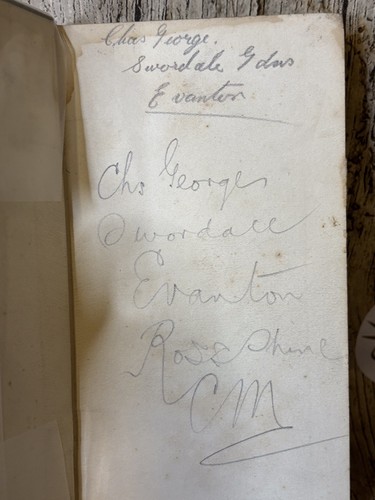 Chas George.
Swordale Gdns
Evanton
Chs George
Swordale
Evanton
Ross Shire
CM